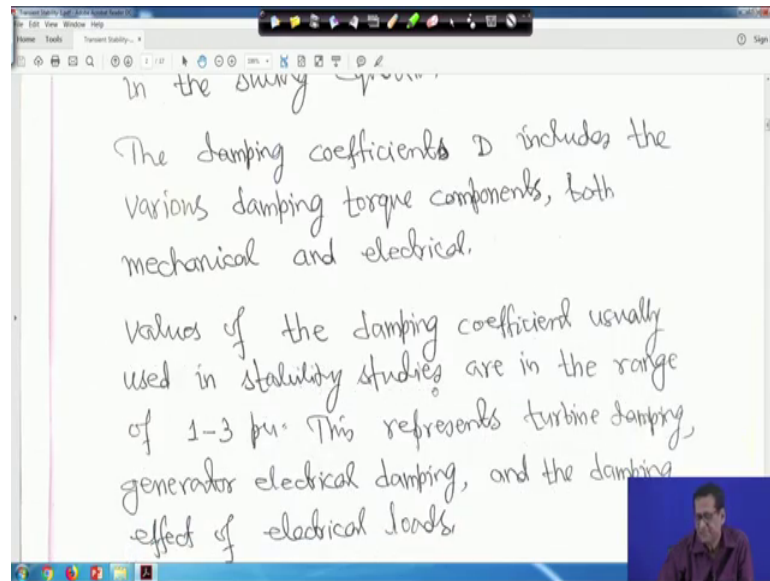 Transient Stability II.pdf - Adobe Acrobat Reader DC
File Edit View Window Help
Home Tools Transient Stability-... × Sign
in the swing
The damping coefficients D includes the
various damping torque components, both
mechanical and electrical.
Values of the damping coefficient usually
used in stability studies are in the range
of 1-3 pu. This represents turbine damping,
generator electrical damping, and the damping
effect of electrical loads.